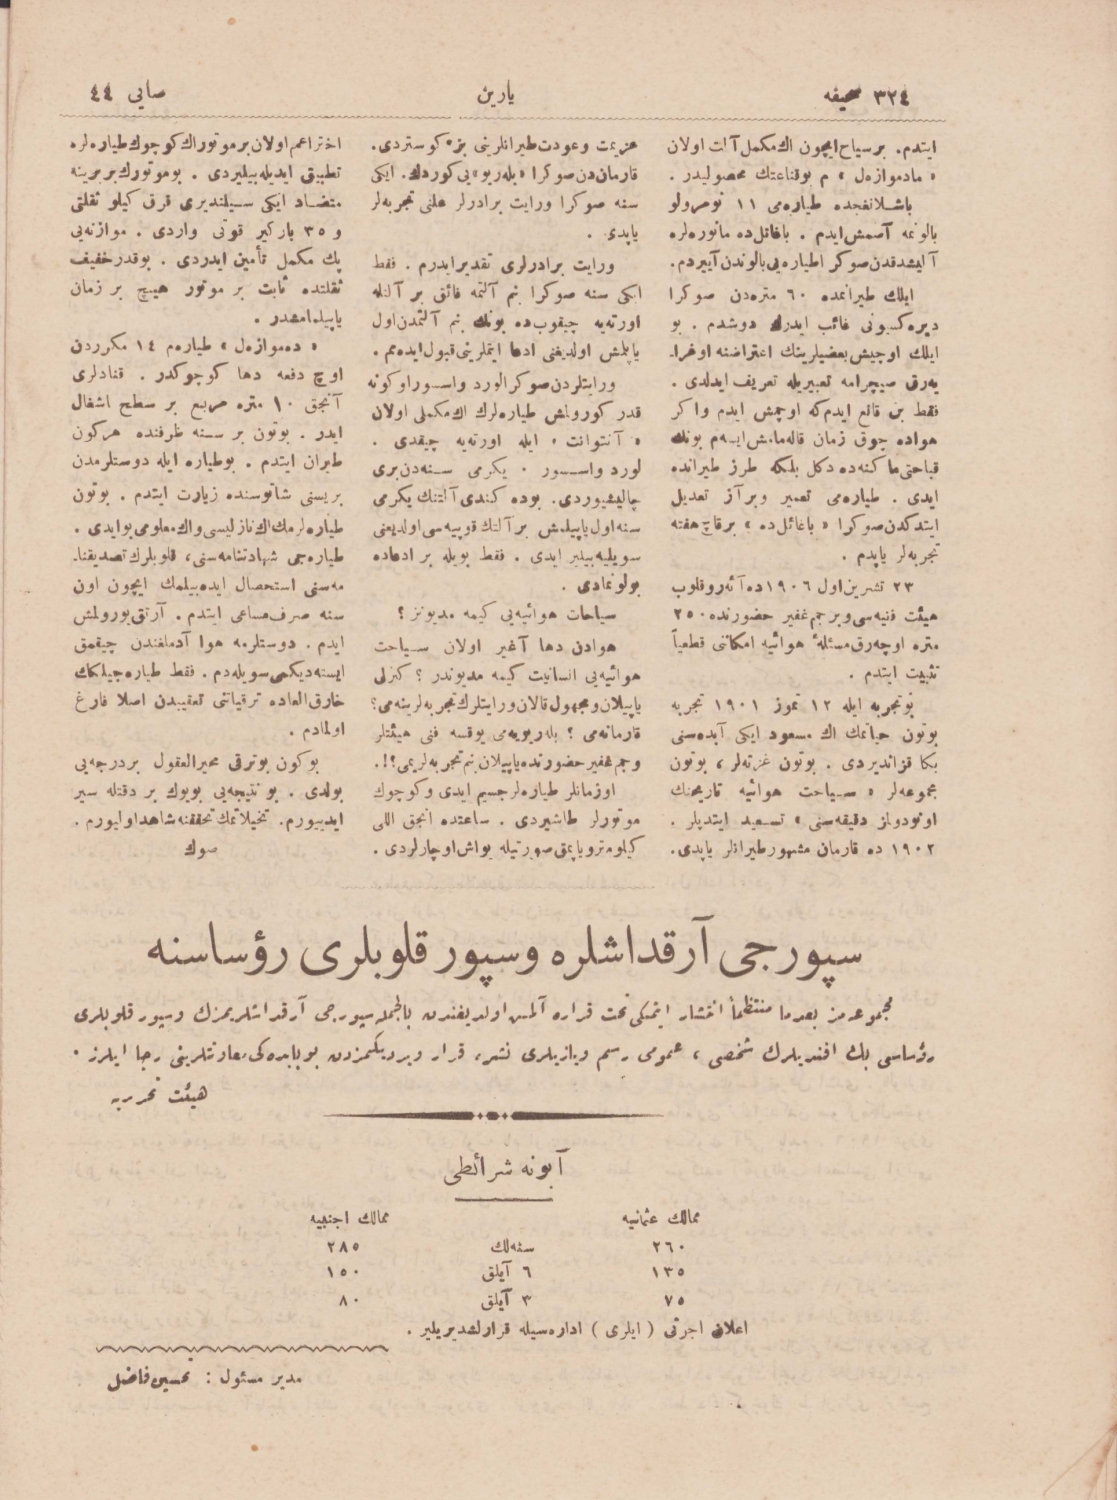 صحیفه ٣٢٤
یارین
صایی ٤٤
ایتدم. بر سیاح ایچون اك مكمل آلت اولان
« مادموازه‌ل » م بو قناعتك محصولیدر .
باشلانغجده طیاره‌می ١١ نومرولو
بالونمه آصمش ایدم . باغاتل‌ده مانوره‌لره
آلیشدقدن صوكرا طیاره‌یی بالوندن آییردم.
ایلك طیرانمده ٦٠ متره‌دن صوكرا
دیره‌كسیونی غائب ایدرك دوشدم . بو
ایلك اوچیش بعضیلرینك اعتراضنه اوغرا-
یه‌رق صیچرامه تعبیریله تعریف ایدلدی .
فقط بن قانع ایدم كه اوچمش ایدم واكر
هواده چوق زمان قاله‌مامش ایسه‌م بونك
قباحتی ماكنه‌ده دكل بلكه طرز طیرانده
ایدی . طیاره‌می تعمیر وبر آز تعدیل
ایتدكدن صوكرا « باغاتل‌ده » برقاچ هفته
تجربه‌لر یاپدم .
٢٣ تشرین اول ١٩٠٦ ده آئه‌رو قلوب
هیئت فنیه‌سی وبر جم غفیر حضورنده ٢٥٠
متره اوچه‌رق مسئلهٔ هوائیه امكاننی قطعیاً
تثبیت ایتدم .
بو تجربه ایله ١٢ تموز ١٩٠١ تجربه
بوتون حیاتمك اك مسعود ایكی آبده‌سنی
بكا قزاندیردی . بوتون غزته‌لر ، بوتون
مجموعه‌لر « سیاحت هوائیه تاریخنك
اونودولماز دقیقه‌سنی » تسعید ایتدیلر .
١٩٠٢ ده فارمان مشهور طیرانلر یاپدی.
عزیمت وعودت طیرانلرینی بزه كوستردی.
فارمان‌دن صوكرا « بله‌ریو » یی كوردك. ایكی
سنه صوكرا ورایت برادرلر علنی تجربه‌لر
یاپدی .
ورایت برادرلری تقدیر ایدرم . فقط
ایكی سنه صوكرا بنم آلتمه فائق بر آلتله
اورته‌یه چیقوب‌ده بونك بنم آلتمدن اول
یاپلمش اولدیغنی ادعا ایتملرینی قبول ایده‌مم .
ورایتلردن صوكرا لورد واسور اوكونه
قدر كورولمش طیاره‌لرك اك مكملی اولان
« آنتوانت » ایله اورته‌یه چیقدی .
لورد واسور . یكرمی سنه‌دن بری
چالیشیوردی. بوده كندی آلتنك یكرمی
سنه اول یاپیلمش بر آلتك قوپیه‌سی اولدیغنی
سویلیه‌بیلیر ایدی . فقط بویله بر ادعاده
بولونمادی .
سیاحات هوائیه‌یی كیمه مدیونز ؟
هوادن دها آغیر اولان سیاحت
هوائیه‌یی انسانیت كیمه مدیوندر ؟ كیزلی
یاپیلان ومجهول قالان ورایتلرك تجربه‌لرینه‌می؟
فارمانه‌می ؟ بله‌ریویه‌می یوقسه فنی هیئتلر
وجم غفیر حضورنده یاپیلان بنم تجربه‌لریمی؟!.
اوزمانلر طیاره‌لر جسیم ایدی وكوچوك
موتورلر طاشیردی . ساعتده انجق اللی
كیلومترو یاپمق صورتیله یواش اوچارلردی .
اختراعم اولان بر موتور اك كوچوك طیاره‌لره
تطبیق ایدیله‌بیلیردی . بو موتورك بربرینه
متضاد ایكی سیلندیری قرق كیلو ثقلتی
و ٣٥ باركیر قوتی واردی . موازنه‌یی
پك مكمل تأمین ایدردی . بوقدر خفیف
ثقلتده ثابت بر موتور هیچ بر زمان
یاپیلمامشدر .
« ده‌موازه‌ل » طیاره‌م ١٤ مكرردن
اوچ دفعه دها كوچوكدر . قنادلری
آنجق ١٠ متره مربع بر سطح اشغال
ایدر . بوتون بر سنه ظرفنده هركون
طیران ایتدم . بو طیاره ایله دوستلرمدن
بریسنی شاتوسنده زیارت ایتدم . بوتون
طیاره‌لرمك اك نازلیسی واك معلومی بو ایدی .
طیاره‌جی شهادتنامه‌سنی، قلوبلرك تصدیقنا-
مه‌سنی استحصال ایده‌بیلمك ایچون اون
سنه صرف مساعی ایتدم . آرتق یورولمش
ایدم . دوستلرمه هوا آدملغندن چیقمق
ایسته‌دیكمی سویله‌دم . فقط طیاره‌جیلكك
خارق‌العاده ترقیاتنی تعقیبدن اصلا فارغ
اولمادم .
بوكون بو ترقی محیرالعقول بر درجه‌یی
بولدی . بو نتیجه‌یی بویوك بر دقتله سیر
ایدییورم. تخیلاتمك تحققنه شاهد اولیورم .
صوك
سپورجی آرقداشلره وسپور قلوبلری رؤساسنه
مجموعه‌مز بعدما منتظماً انتشار ایتمكی تحت قراره آلمش اولدیغندن بالجمله سپورجی آرقداشلریمزك وسپور قلوبلری
رؤساسی بك افندیلرك شخصی ، عمومی رسم ویازیلری نشره قرار ویردیكمزدن بو بابده‌كی معاونتلرینی رجا ایلرز .
هیئت تحرریه
آبونه شرائطی
ممالك عثمانیه ممالك اجنبیه
٢٦٠ سنه‌لك ٢٨٥
١٣٥ ٦ آیلق ١٥٠
٧٥ ٣ آیلق ٨٠
اعلان اجرتی ( ایلری ) اداره‌سیله قرارلشدیریلیر .
مدیر مسئول : تحسین فاضل